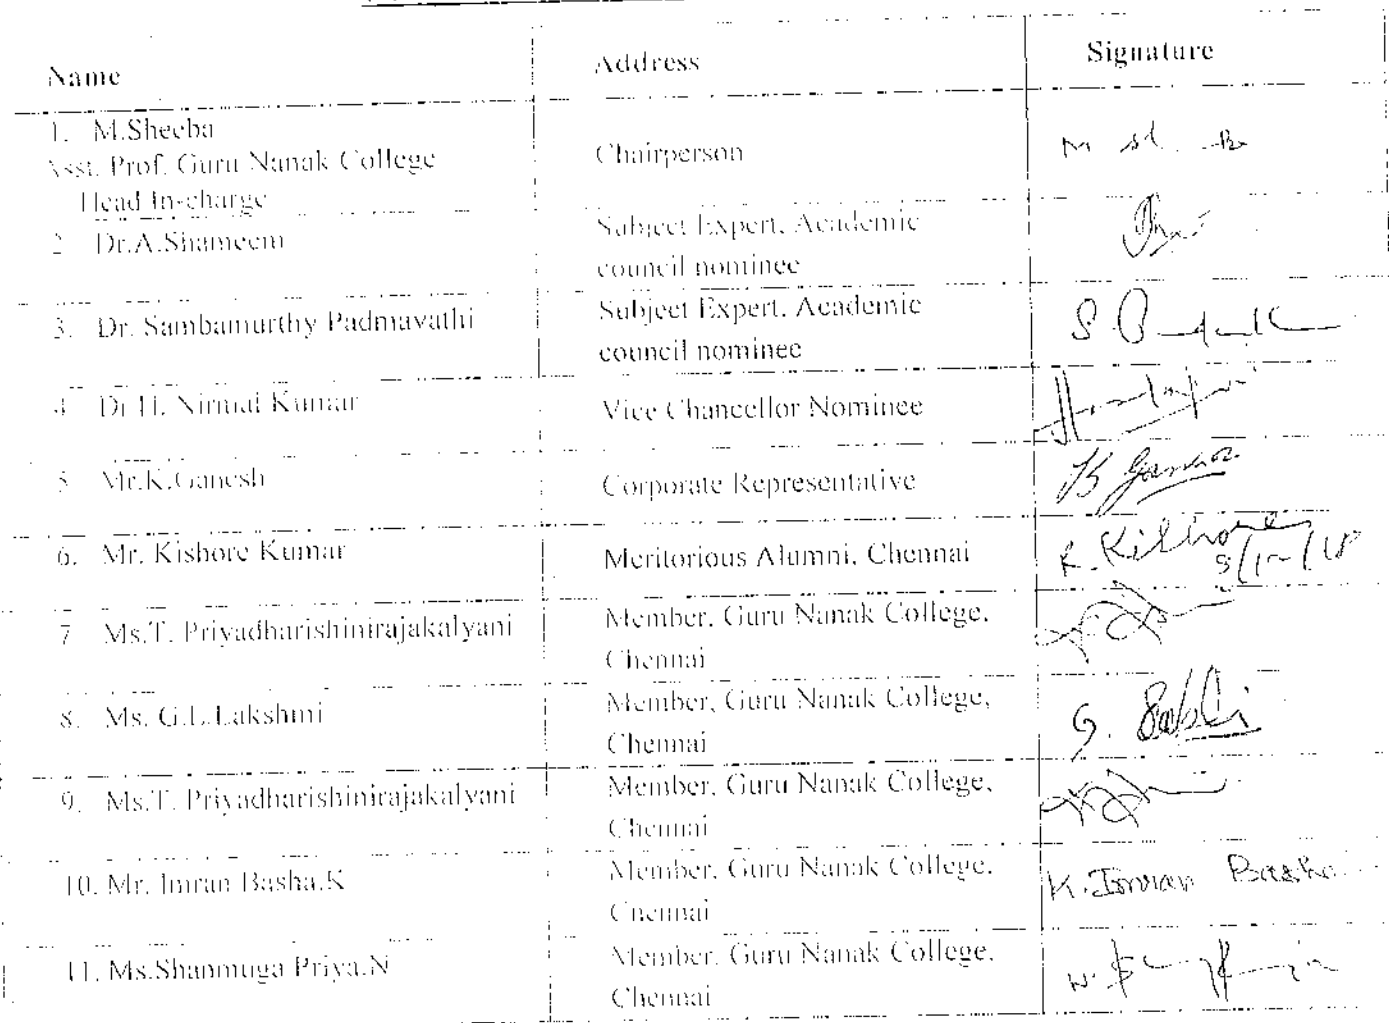 Name Address Signature
1. M.Sheeba
Asst. Prof. Guru Nanak College
Head In-charge
Chairperson
2 Dr.A.Shameem
Subject Expert, Academic
council nominee
3. Dr. Sambamurthy Padmavathi
Subject Expert, Academic
council nominee
4 Dr H. Nirmal Kumar
Vice Chancellor Nominee
5 Mr.K.Ganesh
Corporate Representative
6. Mr. Kishore Kumar
Meritorious Alumni, Chennai
7 Ms.T. Priyadharishinirajakalyani
Member, Guru Nanak College,
Chennai
8. Ms. G.L.Lakshmi
Member, Guru Nanak College,
Chennai
9. Ms.T. Priyadharishinirajakalyani
Member, Guru Nanak College,
Chennai
10. Mr. Imran Basha.K
Member, Guru Nanak College,
Chennai
K. Imran Basha
11. Ms.Shanmuga Priya.N
Member, Guru Nanak College,
Chennai